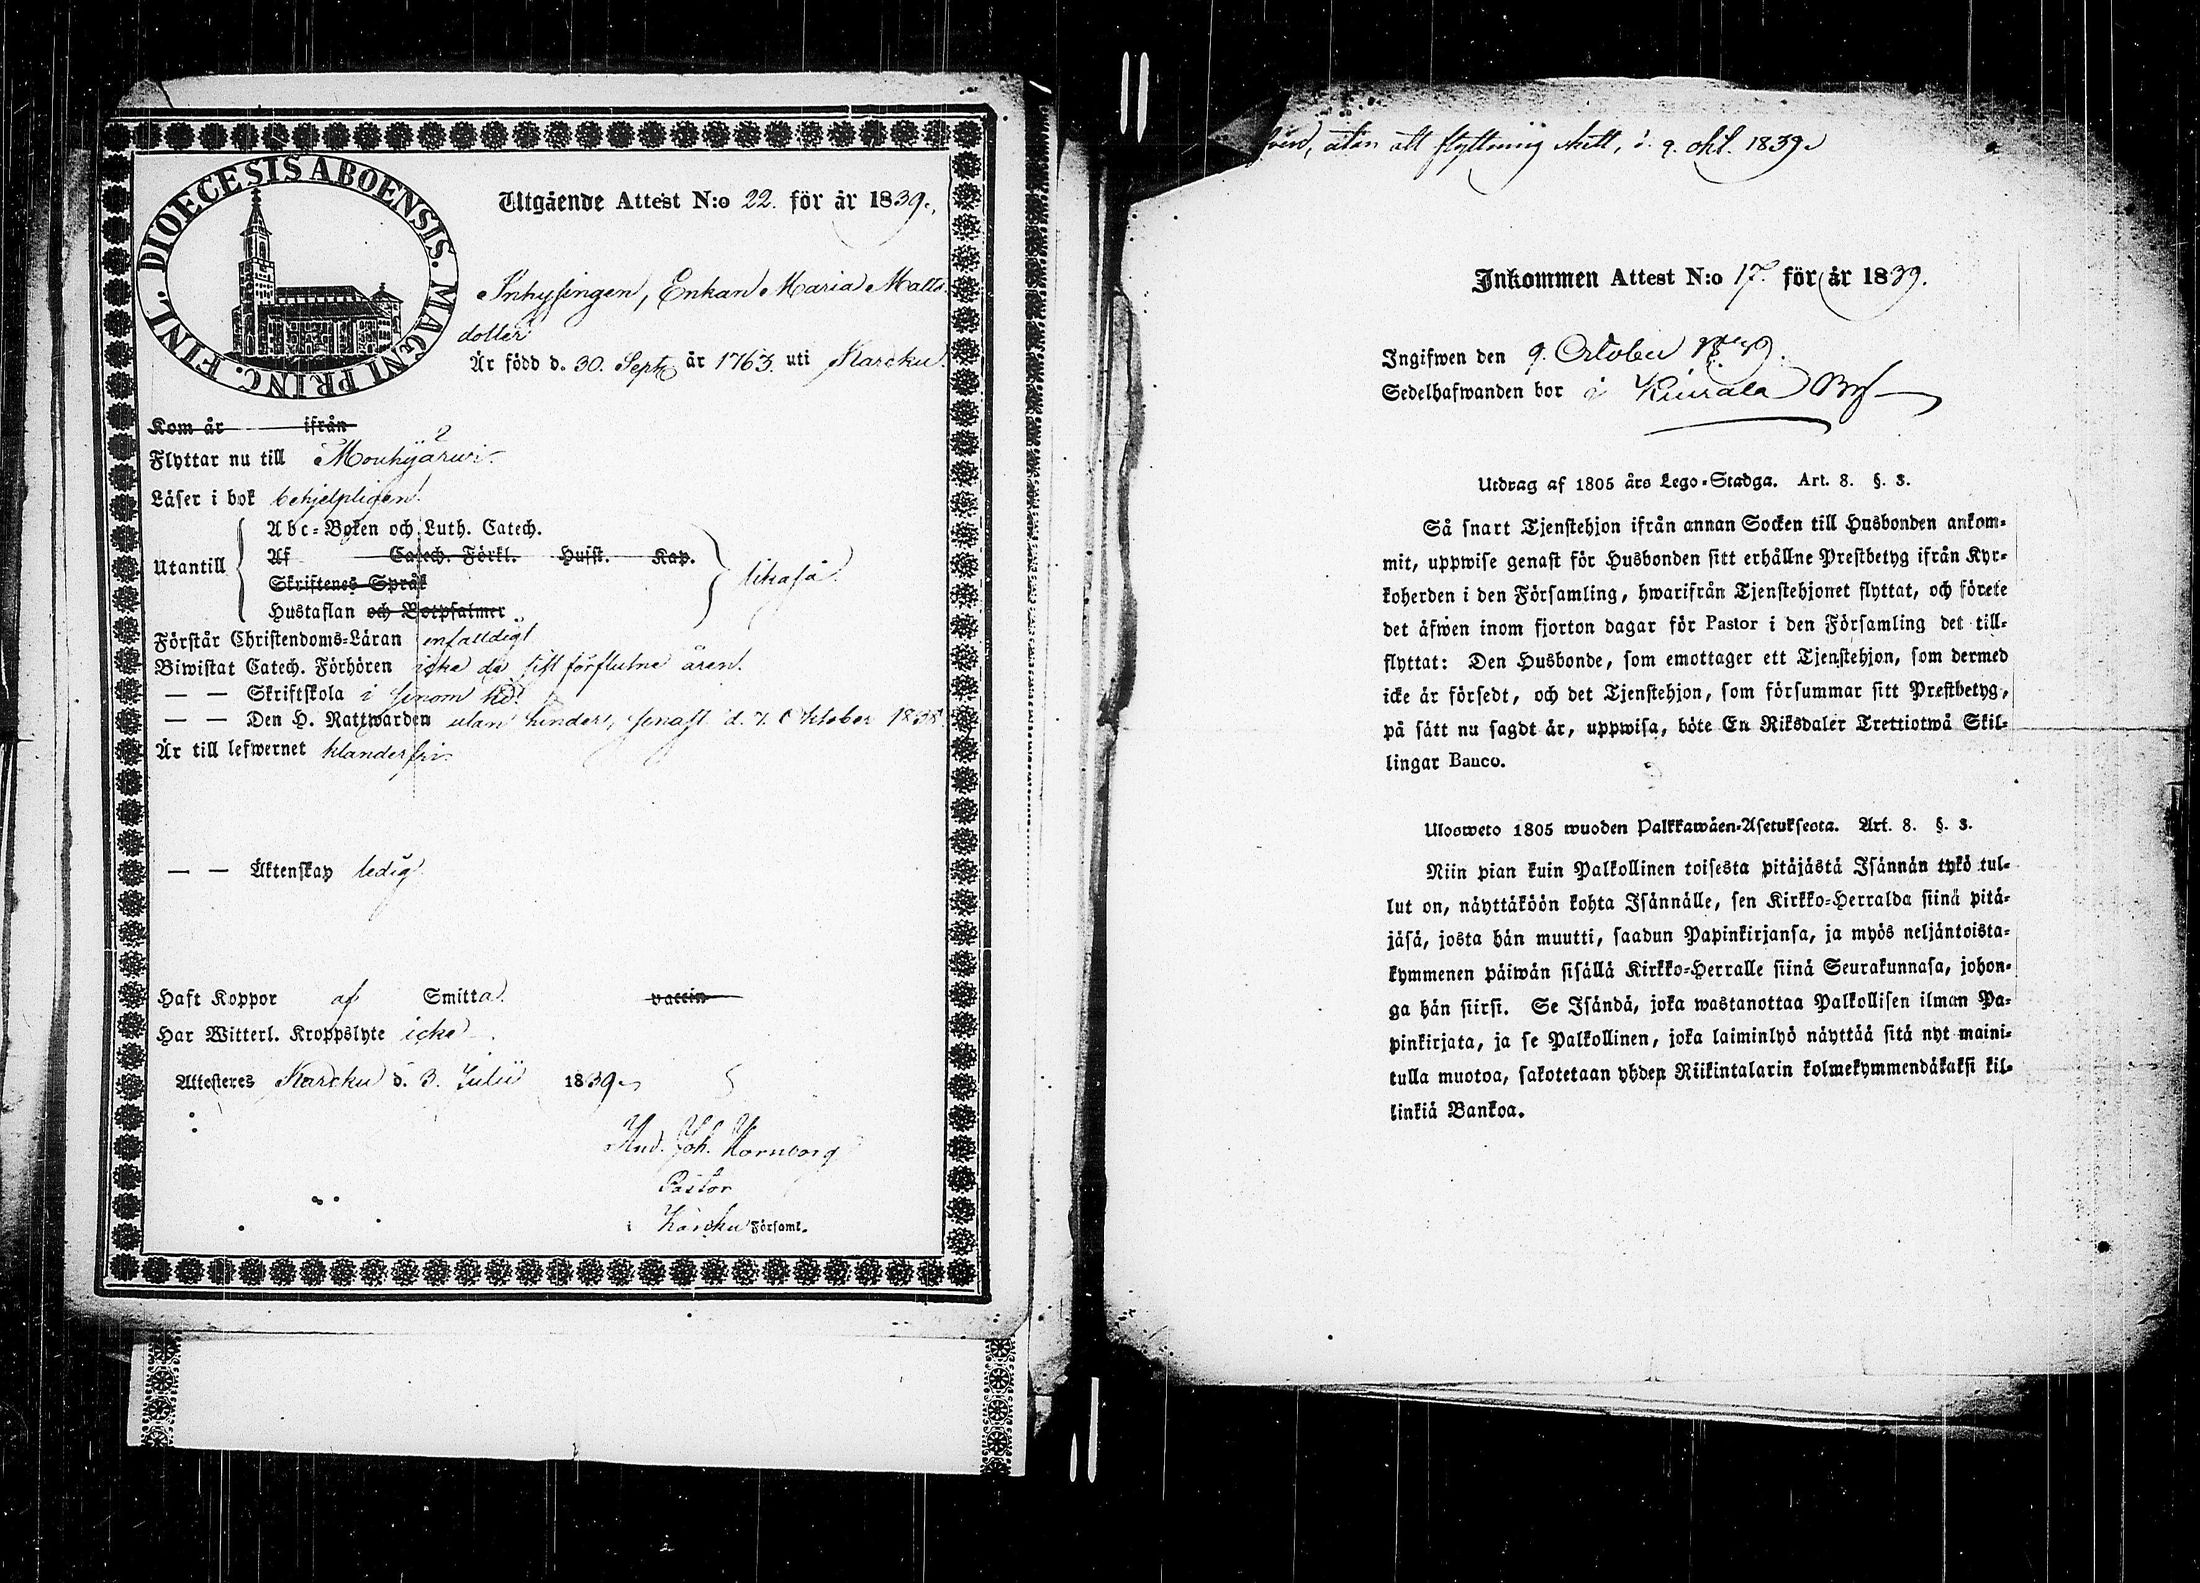 DIOECESIS ABOENSIS. MAGNI PRINC. FINL.
Utgående Attest N:o 22. för år 1839.
Inhysingen, Enkan Maria Matts
dotter
Är född d. 30. Sept. år 1763. uti Karcku.
Kom år ifrån
Flyttar nu till Mouhijärwi.
Läser i bok behjelpligen.
Abc-Boken och Luth. Catech.
Utantill Af Catech. Förkl. Husst. Kap. likaså.
Skriftenes Språk
Hustaflan och Botpsalmer
Förstår Christendoms-Läran enfaldigt
Biwistat Catech. Förhören icke de sist förflutne åren.
— — Skriftskola i sinom tid.
— — Den H. Nattwarden utan hinder, senast d. 7. Oktober 1838
Är till lefwernet klanderfri.
— — Äktenskap ledig.
Haft Koppor af Smitta. vaccin
Har Witterl. Kroppslyte icke
Attesteres Karcku d. 3. Julii 1839.
And. Joh. Hornborg
Pastor
i Karcku Församl.
utan att flyttning skett, d. 9. okt. 1839.
Inkommen Attest N:o 17. för år 1839.
Ingifwen den 9. October 1839.
Sedelhafwanden bor i Kiurala By
Utdrag af 1805 års Lego-Stadga. Art. 8. §. 3.
Så snart Tjenstehjon ifrån annan Socken till Husbonden ankom-
mit, uppwise genast för Husbonden sitt erhållne Prestbetyg ifrån Kyr-
koherden i den Församling, hwarifrån Tjenstehjonet flyttat, och förete
det äfwen inom fjorton dagar för Pastor i den Församling det till-
flyttat: Den Husbonde, som emottager ett Tjenstehjon, som dermed
icke är försedt, och det Tjenstehjon, som försummar sitt Prestbetyg,
på sätt nu sagdt är, uppwisa, böte En Riksdaler Trettiotwå Skil-
lingar Banco.
Ulosweto 1805 wuoden Palkkawäen-Asetuksesta. Art. 8. §. 3.
Niin pian kuin Palkollinen toisesta pitäjästä Isännän tykö tul-
lut on, näyttäköön kohta Isännälle, sen Kirkko-Herralda siinä pitä-
jäsä, josta hän muutti, saadun Papinkirjansa, ja myös neljäntoista-
kymmenen päiwän sisällä Kirkko-Herralle siinä Seurakunnasa, johon-
ga hän siirsi. Se Isändä, joka wastanottaa Palkollisen ilman Pa-
pinkirjata, ja se Palkollinen, joka laiminlyö näyttää sitä nyt maini-
tulla muotoa, sakotetaan yhden Riikintalarin kolmekymmendäkaksi kil-
linkiä Bankoa.